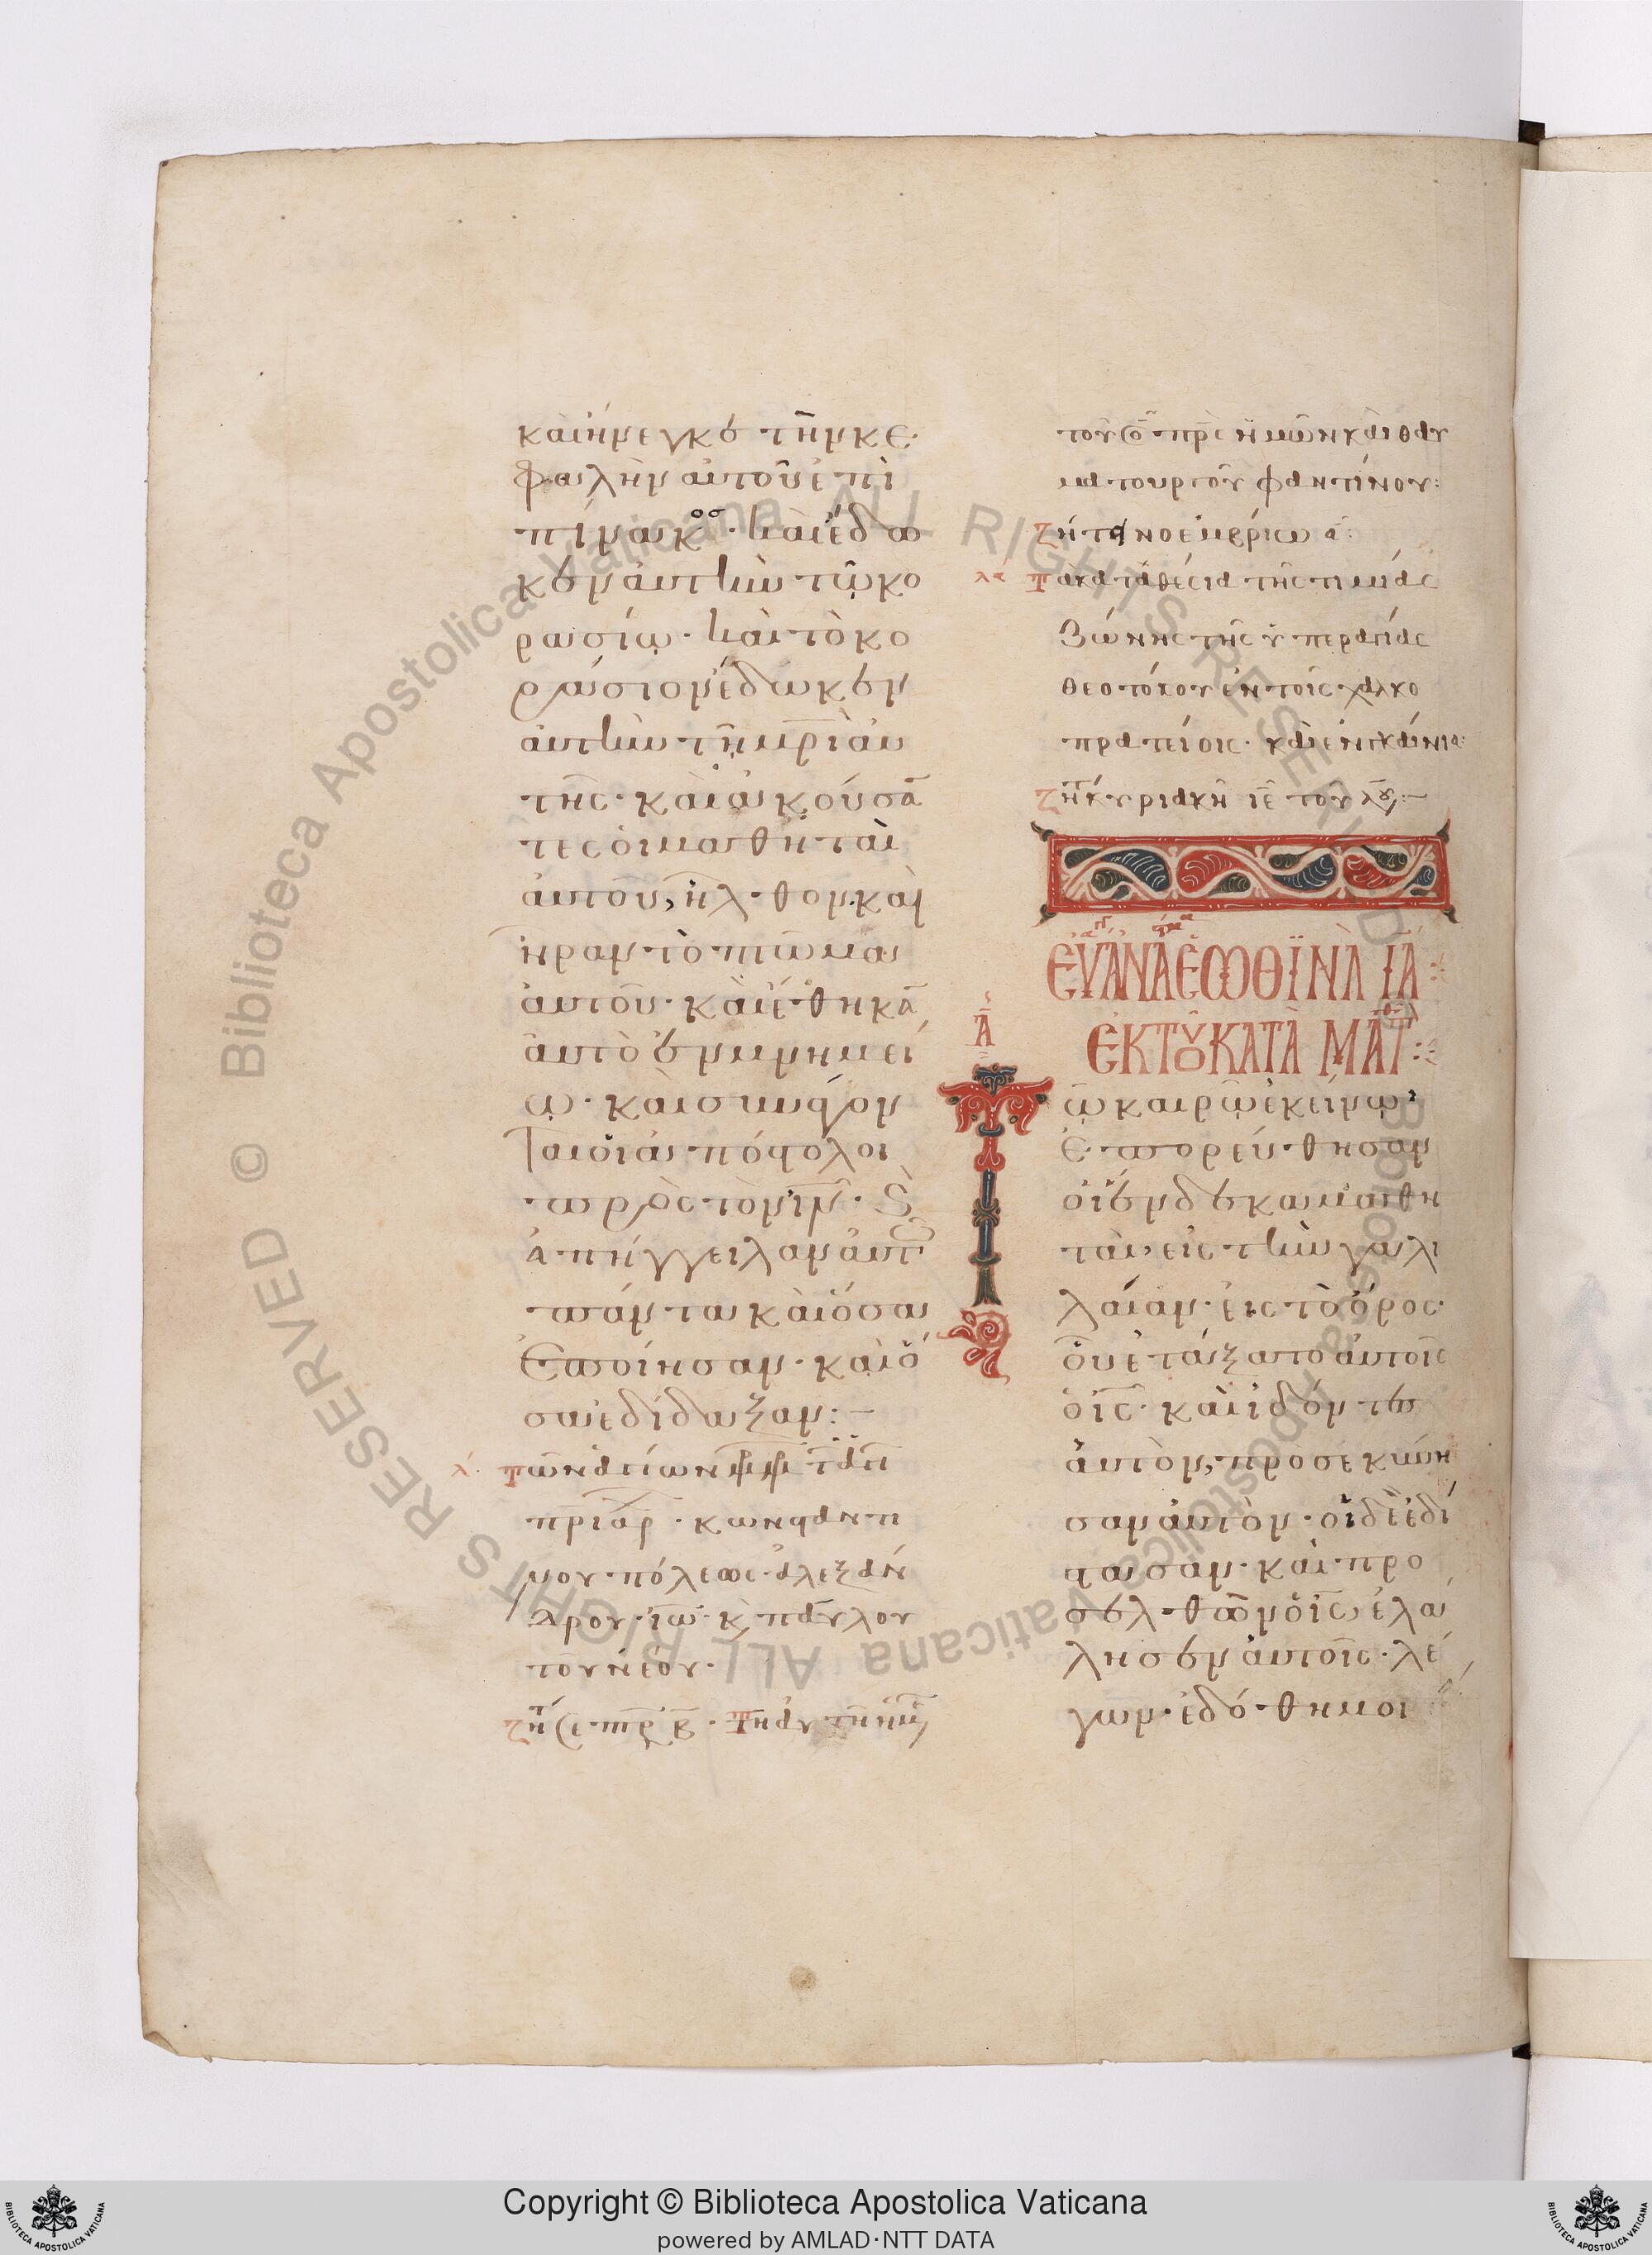 καὶ ἤνεγκε τὴν κε
φαλὴν αὐτοῦ ἐπὶ
πίνακος · καὶ ἔδω
κεν αὐτὴν τῷ κο
ρασίῳ · καὶ τὸ κο
ράσιον ἔδωκεν
αὐτὴν τῇ μρὶ αὐ
τῆς · καὶ ἀκούσα
τες ὁι μαθηταὶ
αὐτοῦ, ἦλθον · καὶ
ἦραν τὸ πτῶμα
αὐτοῦ · καὶ ἔθηκα
αὐτὸ ἐν μνημεί
ῳ · καὶ συνάγον
ται ὁι ἀπόστολοι
πρὸς τὸν ιν · καὶ
ἀπήγγειλαν αὐτῷ
πάντα καὶ ὅσα
ἐποίησαν · καὶ ὅ
σα ἐδίδαξαν :–
λ. Τῶν ἁγίων
πριαρ · κωνσταντι
νου πόλεως · ἀλεξάν
δρου · ἰω · κ παύλου
τοῦ νέου ·
Τῆ αυτῆ ἡμ
τοῦ πρς ἡμῶν καὶ θαυ
ματουργοῦ φαντίνου :
ζήτ νοεμβρίω α :
λα Τὰ καταθέσια τῆς τιμίας
ζώνης τῆς ὑπεραγίας
θεοτόκου ἐν τοῖς χαλκο
πρατείοις · καὶ ἐνκαίνια
ζητ κυριακῆ ιε τοῦ λου :–
ΕΥΑ ΑΝΑ ΕΩΘΙΝΑ ΙΑ :
Α
ΕΚ ΤΟΥ ΚΑΤΑ ΜΑΤ :
Τῷ καιρῷ ἐκείνῳ,
ἐπορεύθησαν
ὁι ἕνδεκα μαθη
ταὶ, εἰς τὴν γαλι
λαίαν · εἰς τὸ ὄρος ·
οὗ ἐτάξατο αὐτοῖς
ὁ ις · καὶ ἰδόντες
αὐτὸν, προσεκύνη
σαν αὐτὸν · οἱ δὲ ἐδί
στασαν · καὶ προ
σελθὼν ὁ ις ἐλά
λησεν αὐτοῖς · λέ
γων · ἐδόθη μοι
Copyright © Biblioteca Apostolica Vaticana
powered by AMLAD·NTT DATA